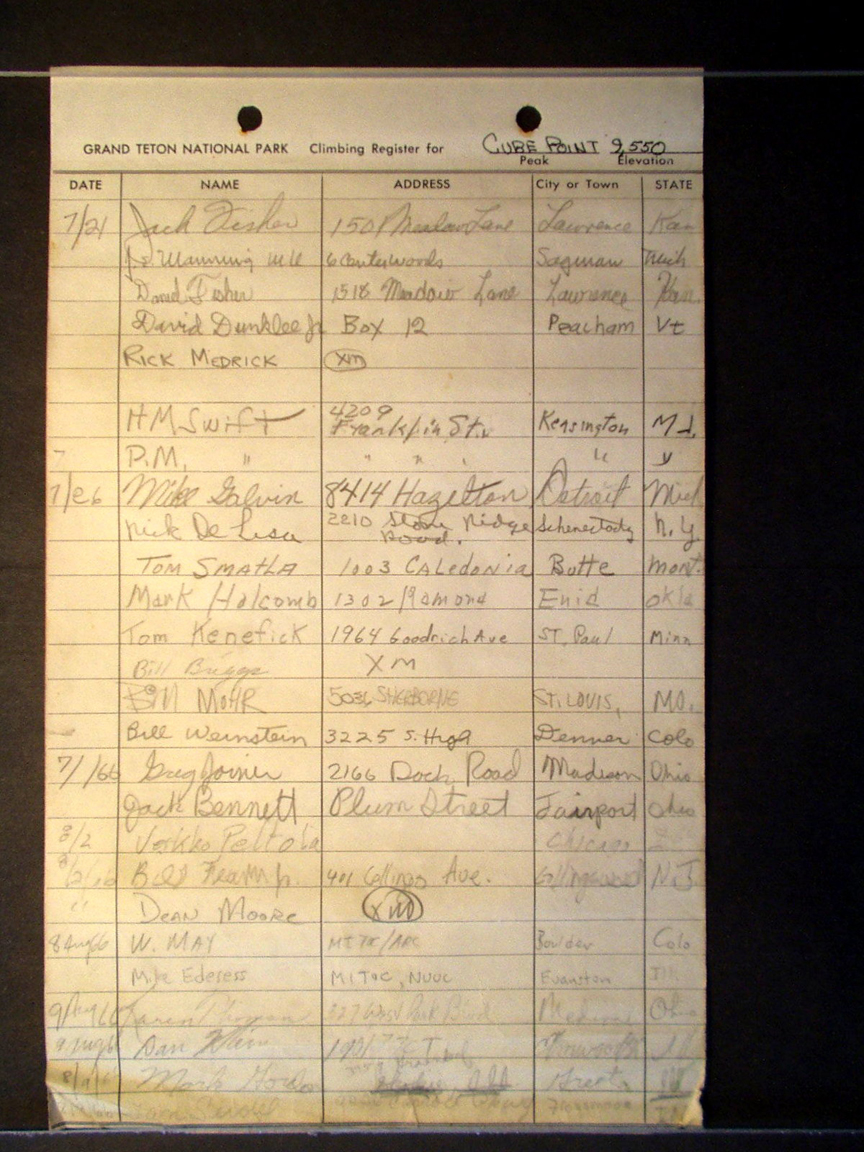 GRAND TETON NATIONAL PARK Climbing Register for CUBE POINT 9,550
Peak Elevation
DATE NAME ADDRESS City or Town STATE
7/21 Jack Fisher 1501 Meadow Lane Lawrence Kan
Manning 6 Center Woods Saginaw Mich
Daniel Fisher 1518 Meadow Lane Lawrence Kan.
David Dunklee Jr Box 12 Peacham Vt
RICK MEDRICK XM
HM Swift 4209 Franklin St. Kensington Md.
P.M. " " " " "
7/26 Mike Galvin 8414 Hazelton Detroit Mich
Nick De Lisa 2210 Stone Ridge Road. Schenectady N.Y.
TOM SMATLA 1003 CALEDONIA Butte Mont.
Mark Holcomb 1302 Enid Okla
Tom Kenefick 1964 Goodrich Ave ST. Paul Minn
Bill Briggs XM
Bill MOHR 5036 SHERBORNE ST. LOUIS, MO.
Bill Weinstein 3225 S. High Denver Colo
7/ /66 Greg Joiner 2166 Dock Road Madison Ohio
Jack Bennett Plum Street Fairport Ohio
8/2 Peltola Chicago
Bill 401 Collings Ave. Collingswood N.J.
" DEAN MOORE XM
8 Aug 66 W. MAY MITOC/AAC Boulder Colo
Mike Edesess MITOC, NUOC Evanston Ill
9 Aug 66 Karen Blvd Ohio
9 Aug 66 Dan
8/9/ Mark